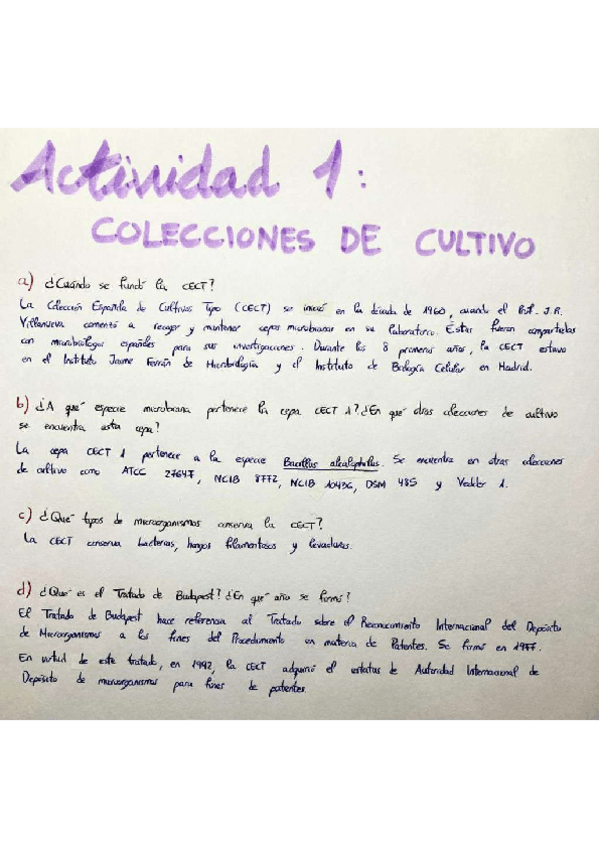 Actividad 1:
COLECCIONES DE CULTIVO
a) ¿Cuándo se fundó la CECT?
La Colección Española de Cultivos Tipo (CECT) se inició en la década de 1960, cuando el Prof. J.R.
Villanueva comenzó a recoger y mantener cepas microbianas en su laboratorio. Estas fueron compartidas
con microbiólogos españoles para sus investigaciones. Durante los 8 primeros años, la CECT estuvo
en el Instituto Jaume Ferrán de Microbiología y el Instituto de Biología Celular en Madrid.
b) ¿A qué especie microbiana pertenece la cepa CECT 1? ¿En qué otras colecciones de cultivo
se encuentra esta cepa?
La cepa CECT 1 pertenece a la especie Bacillus alcalophilus. Se encuentra en otras colecciones
de cultivo como ATCC 27647, NCIB 8772, NCIB 10436, DSM 485 y Vedder 1.
c) ¿Qué tipos de microorganismos conserva la CECT?
La CECT conserva bacterias, hongos filamentosos y levaduras.
d) ¿Qué es el Tratado de Budapest? ¿En qué año se firmó?
El Tratado de Budapest hace referencia al Tratado sobre el Reconocimiento Internacional del Depósito
de Microorganismos a los fines del Procedimiento en materia de Patentes. Se firmó en 1977.
En virtud de este tratado, en 1992, la CECT adquirió el estatus de Autoridad Internacional de
Depósito de microorganismos para fines de patentes.